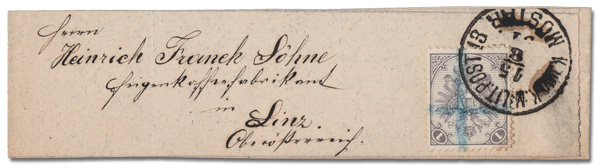 Herrn
Heinrich Franck Söhne
Feigenkaffeefabrikant
in
Linz
Oberösterreich.
K. UND K. MILIT. POST 13
MOSTAR
15
6
1
1